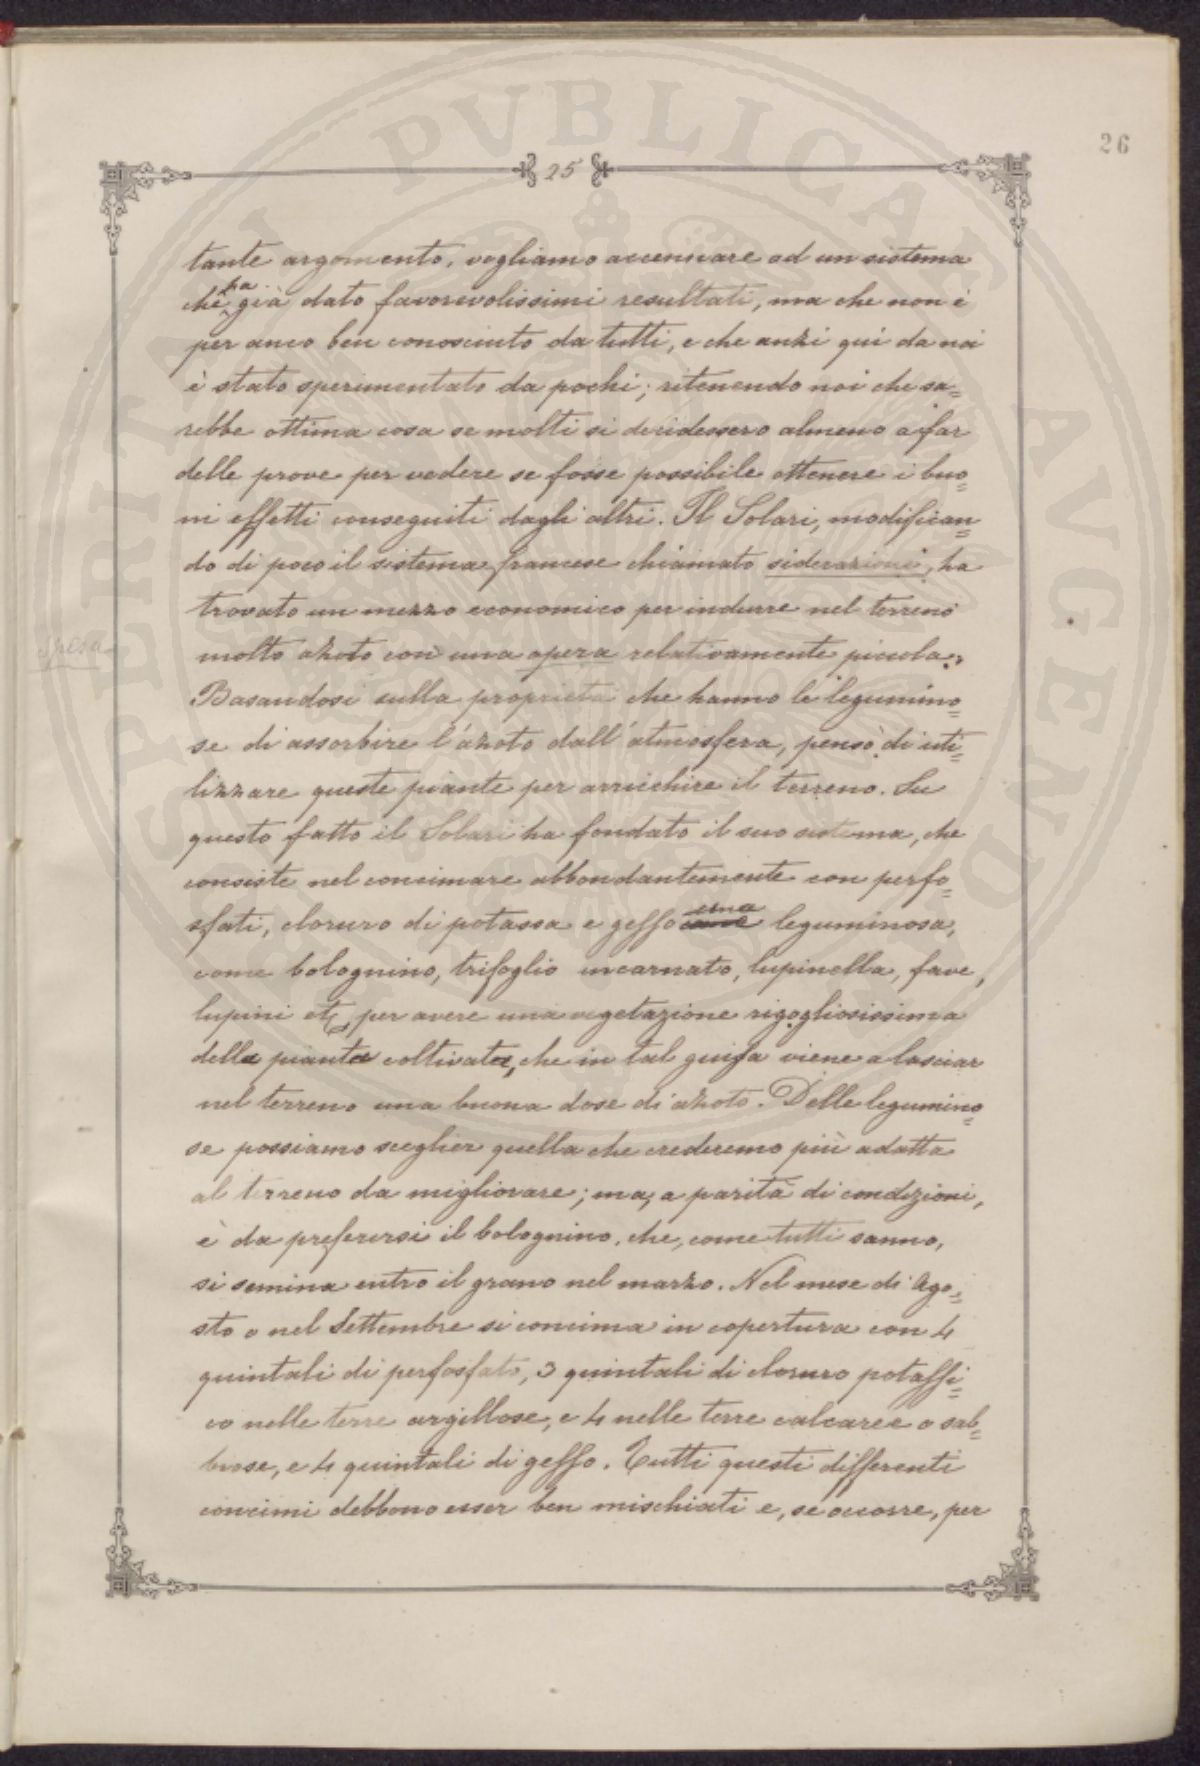 26
25
tante argomento, vogliamo accennare ad un sistema
che ha già dato favorevolissimi resultati, ma che non è
per anco ben conosciuto da tutti, e che anzi qui da noi
è stato sperimentato da pochi; ritenendo noi che sa=
rebbe ottima cosa se molti si decidessero almeno a far
delle prove per vedere se fosse possibile ottenere i buo=
ni effetti conseguiti dagli altri. Il Solari, modifican=
do di poco il sistema francese chiamato siderazioni, ha
trovato un mezzo economico per indurre nel terreno
spesa
molto azoto con una opera relativamente piccola.
Basandosi sulla proprietà che hanno le legumino=
se di assorbire l'azoto dall'atmosfera, pensò di uti=
lizzare queste piante per arricchire il terreno. Su
questo fatto il Solari ha fondato il suo sistema, che
consiste nel concimare abbondantemente con perfo=
sfati, cloruro di potassa e gesso una leguminosa,
come bolognino, trifoglio incarnato, lupinella, fave,
lupini etc, per avere una vegetazione rigogliosissima
della pianta coltivata, che in tal guisa viene a lasciar
nel terreno una buona dose di azoto. Delle legumino=
se possiamo sceglier quella che crederemo più adatta
al terreno da migliorare; ma, a parità di condizioni,
è da preferirsi il bolognino, che, come tutti sanno,
si semina entro il grano nel marzo. Nel mese di Ago=
sto o nel Settembre si concima in copertura con 4
quintali di perfosfato, 3 quintali di cloruro potassi=
co nelle terre argillose, e 4 nelle terre calcaree o sab=
biose, e 4 quintali di gesso. Tutti questi differenti
concimi debbono esser ben mischiati e, se occorre, per